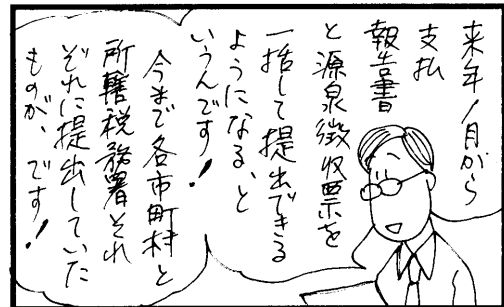 来年1月から
支払
報告書
と源泉徴収票を
一括して提出できる
ようになる、と
いうんです!
今まで各市町村と
所轄税務署それ
ぞれに提出していた
ものが、です!